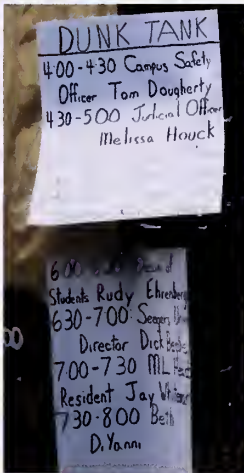 DUNK TANK
4:00-4:30 Campus Safety
Officer Tom Dougherty
430-500 Judicial Officer
Melissa Houck
6:00 of
Students Rudy Ehrenberg
630-7:00
Director Dick
7:00-730 ML
Resident Jay
730-8:00 Beth
DiYanni